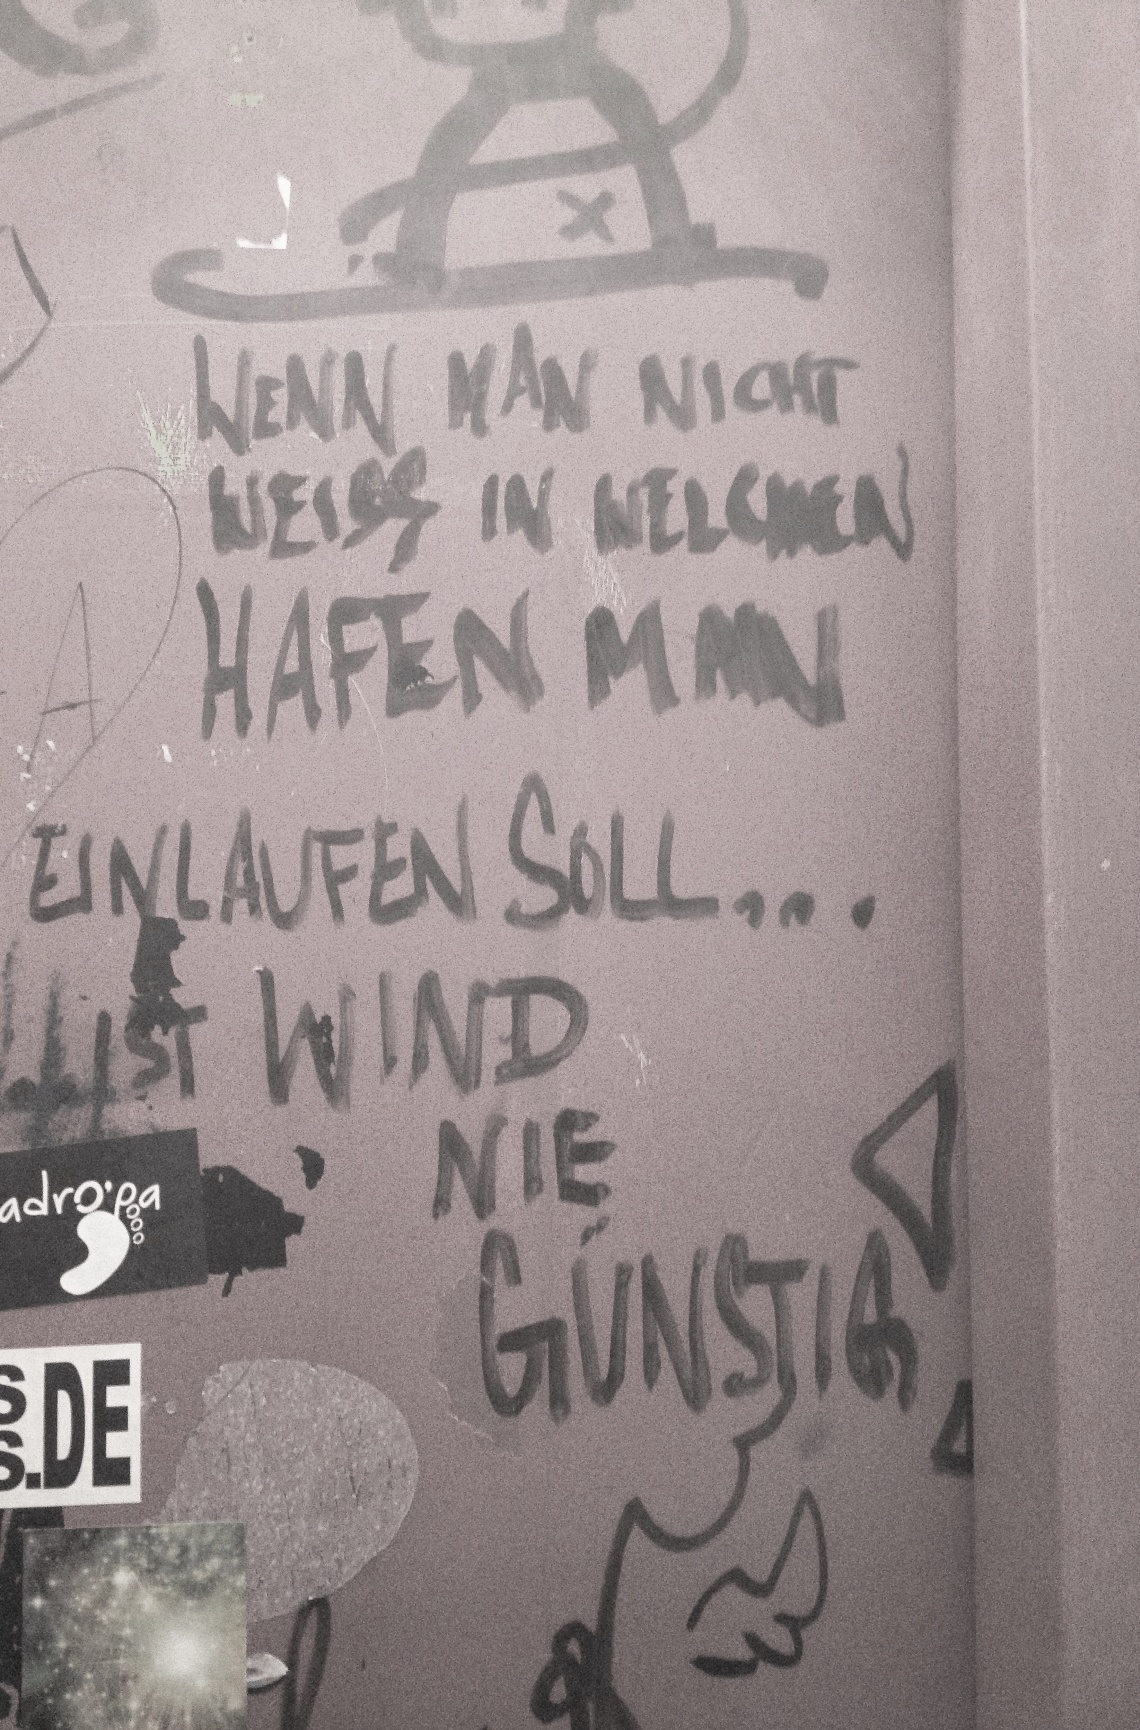 WENN MAN NICHT
WEISS IN WELCHEN
HAFEN MAN
EINLAUFEN SOLL...
IST WIND
NIE
GÜNSTIG
adro'pa
S
S.DE